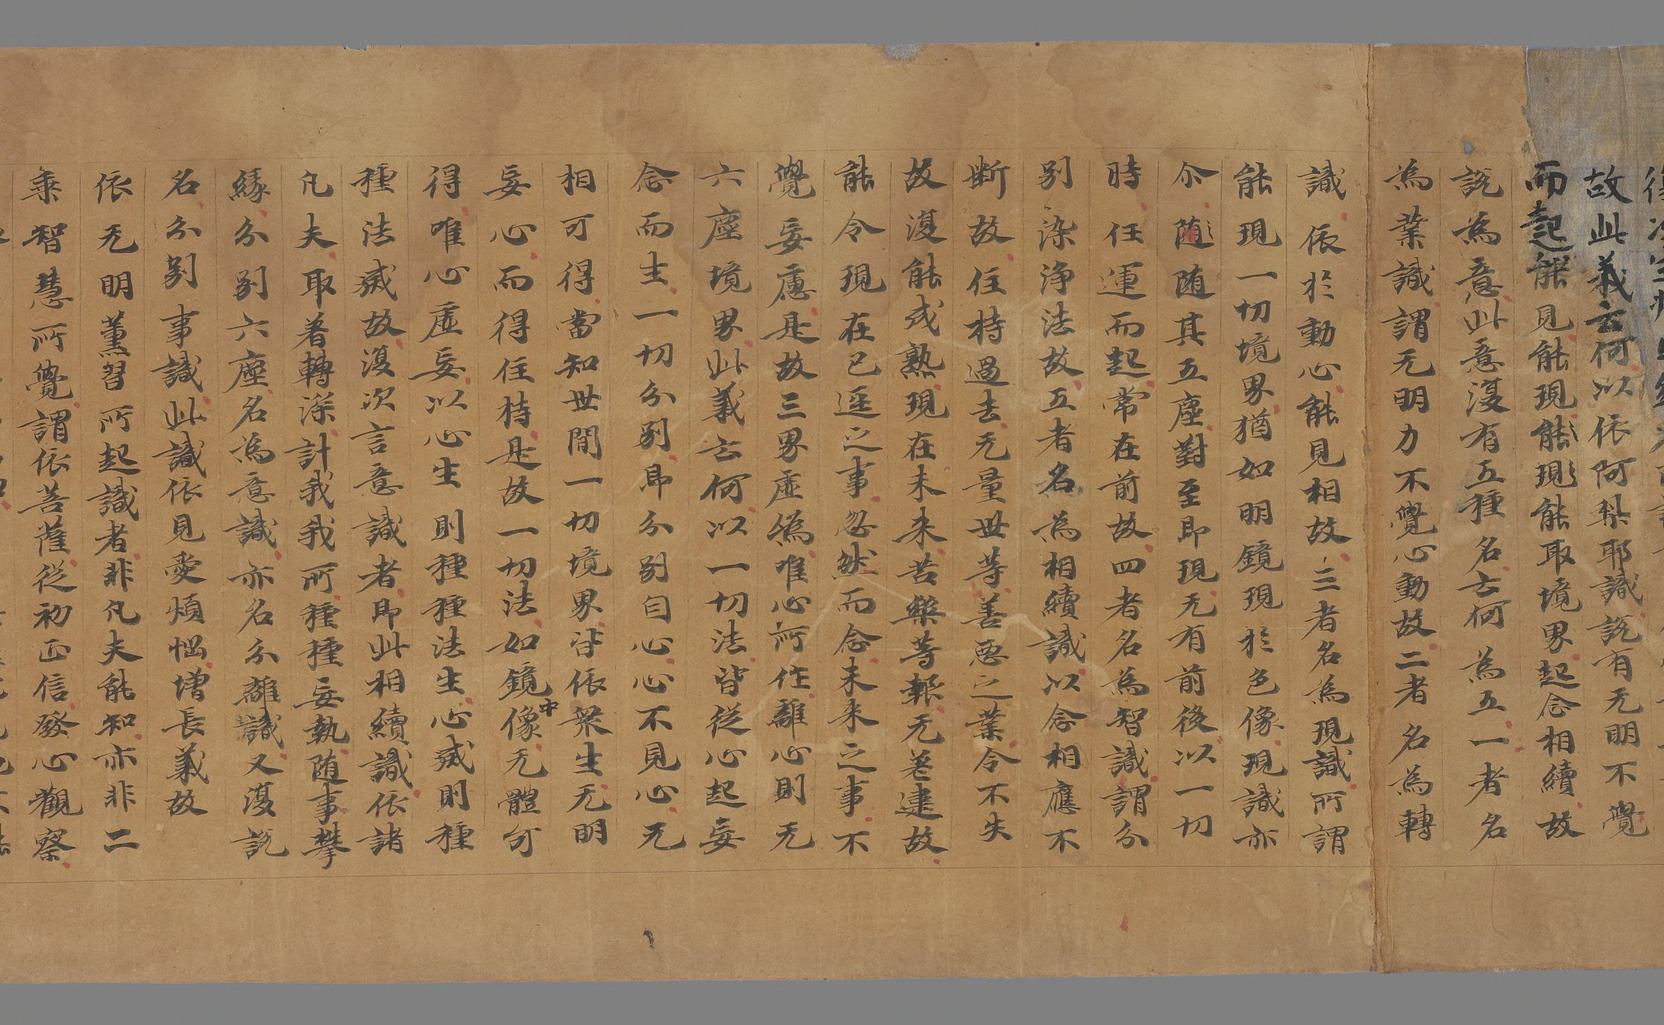 故此義云何以依阿梨耶識說有无明不覺
而起能見能現能現能取境界起念相續故
說為意此意復有五種名云何為五一者名
為業識謂无明力不覺心動故二者名為轉
識依於動心能見相故三者名為現識所謂
能現一切境界猶如明鏡現於色像現識亦
尒随随其五塵對至即現无有前後以一切
時任運而起常在前故四者名為智識謂分
別染淨法故五者名為相續識以念相應不
斷故住持過去无量世等善惡之業令不失
故復能成熟現在未來苦樂等報无差違故
能令現在已逕之事忽然而念未來之事不
覺妄慮是故三界虛偽唯心所作離心則无
六塵境界此義云何以一切法皆從心起妄
念而生一切分別即分別自心心不見心无
相可得當知世間一切境界皆依眾生无明
妄心而得住持是故一切法如鏡中像无體可
得唯心虛妄以心生則種種法生心滅則種
種法滅故復次言意識者即此相續識依諸
凡夫取著轉深計我我所種種妄執随事攀
緣分別六塵名為意識亦名分離識又復說
名分別事識此識依見愛煩惱增長義故
依无明薰習所起識者非凡夫能知亦非二
乘智慧所覺謂依菩薩從初正信發心觀察